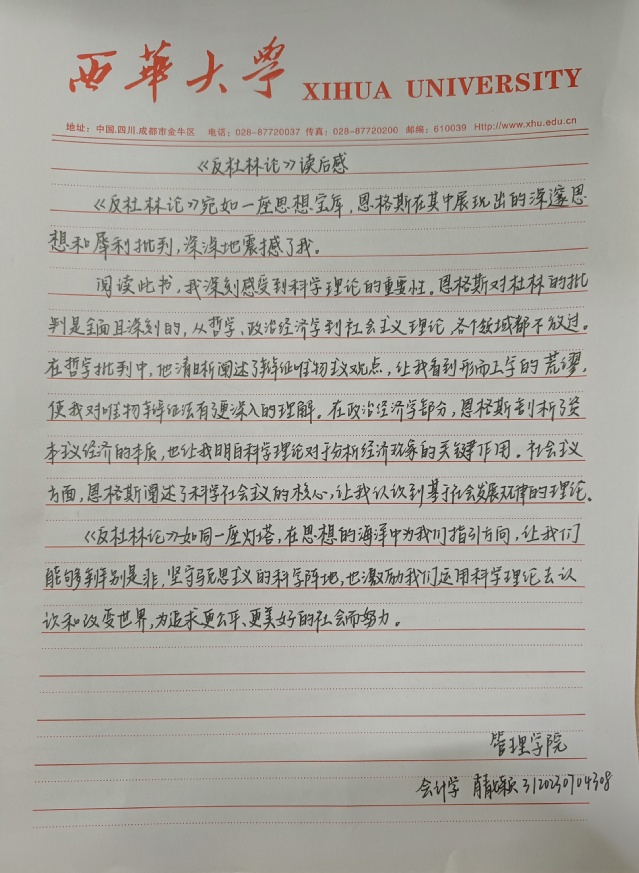 西華大学 XIHUA UNIVERSITY
地址：中国.四川.成都市金牛区 电话：028-87720037 传真：028-87720200 邮编：610039 Http://www.xhu.edu.cn
《反杜林论》读后感
《反杜林论》宛如一座思想宝库，恩格斯在其中展现出的深邃思
想和犀利批判，深深地震撼了我。
阅读此书，我深刻感受到科学理论的重要性。恩格斯对杜林的批
判是全面且深刻的，从哲学、政治经济学到社会主义理论，各个领域都不放过。
在哲学批判中，他清晰阐述了辩证唯物主义观点，让我看到形而上学的荒谬，
使我对唯物辩证法有了更深入的理解。在政治经济学部分，恩格斯剖析了资
本主义经济的本质，也让我明白科学理论对于分析经济现象的关键作用。社会主义
方面，恩格斯阐述了科学社会主义的核心，让我认识到基于社会发展规律的理论。
《反杜林论》如同一座灯塔，在思想的海洋中为我们指引方向，让我们
能够辨别是非，坚守马克思主义的科学阵地，也激励我们运用科学理论去认
识和改变世界，为追求更公平、更美好的社会而努力。
管理学院
会计学 3120230704308